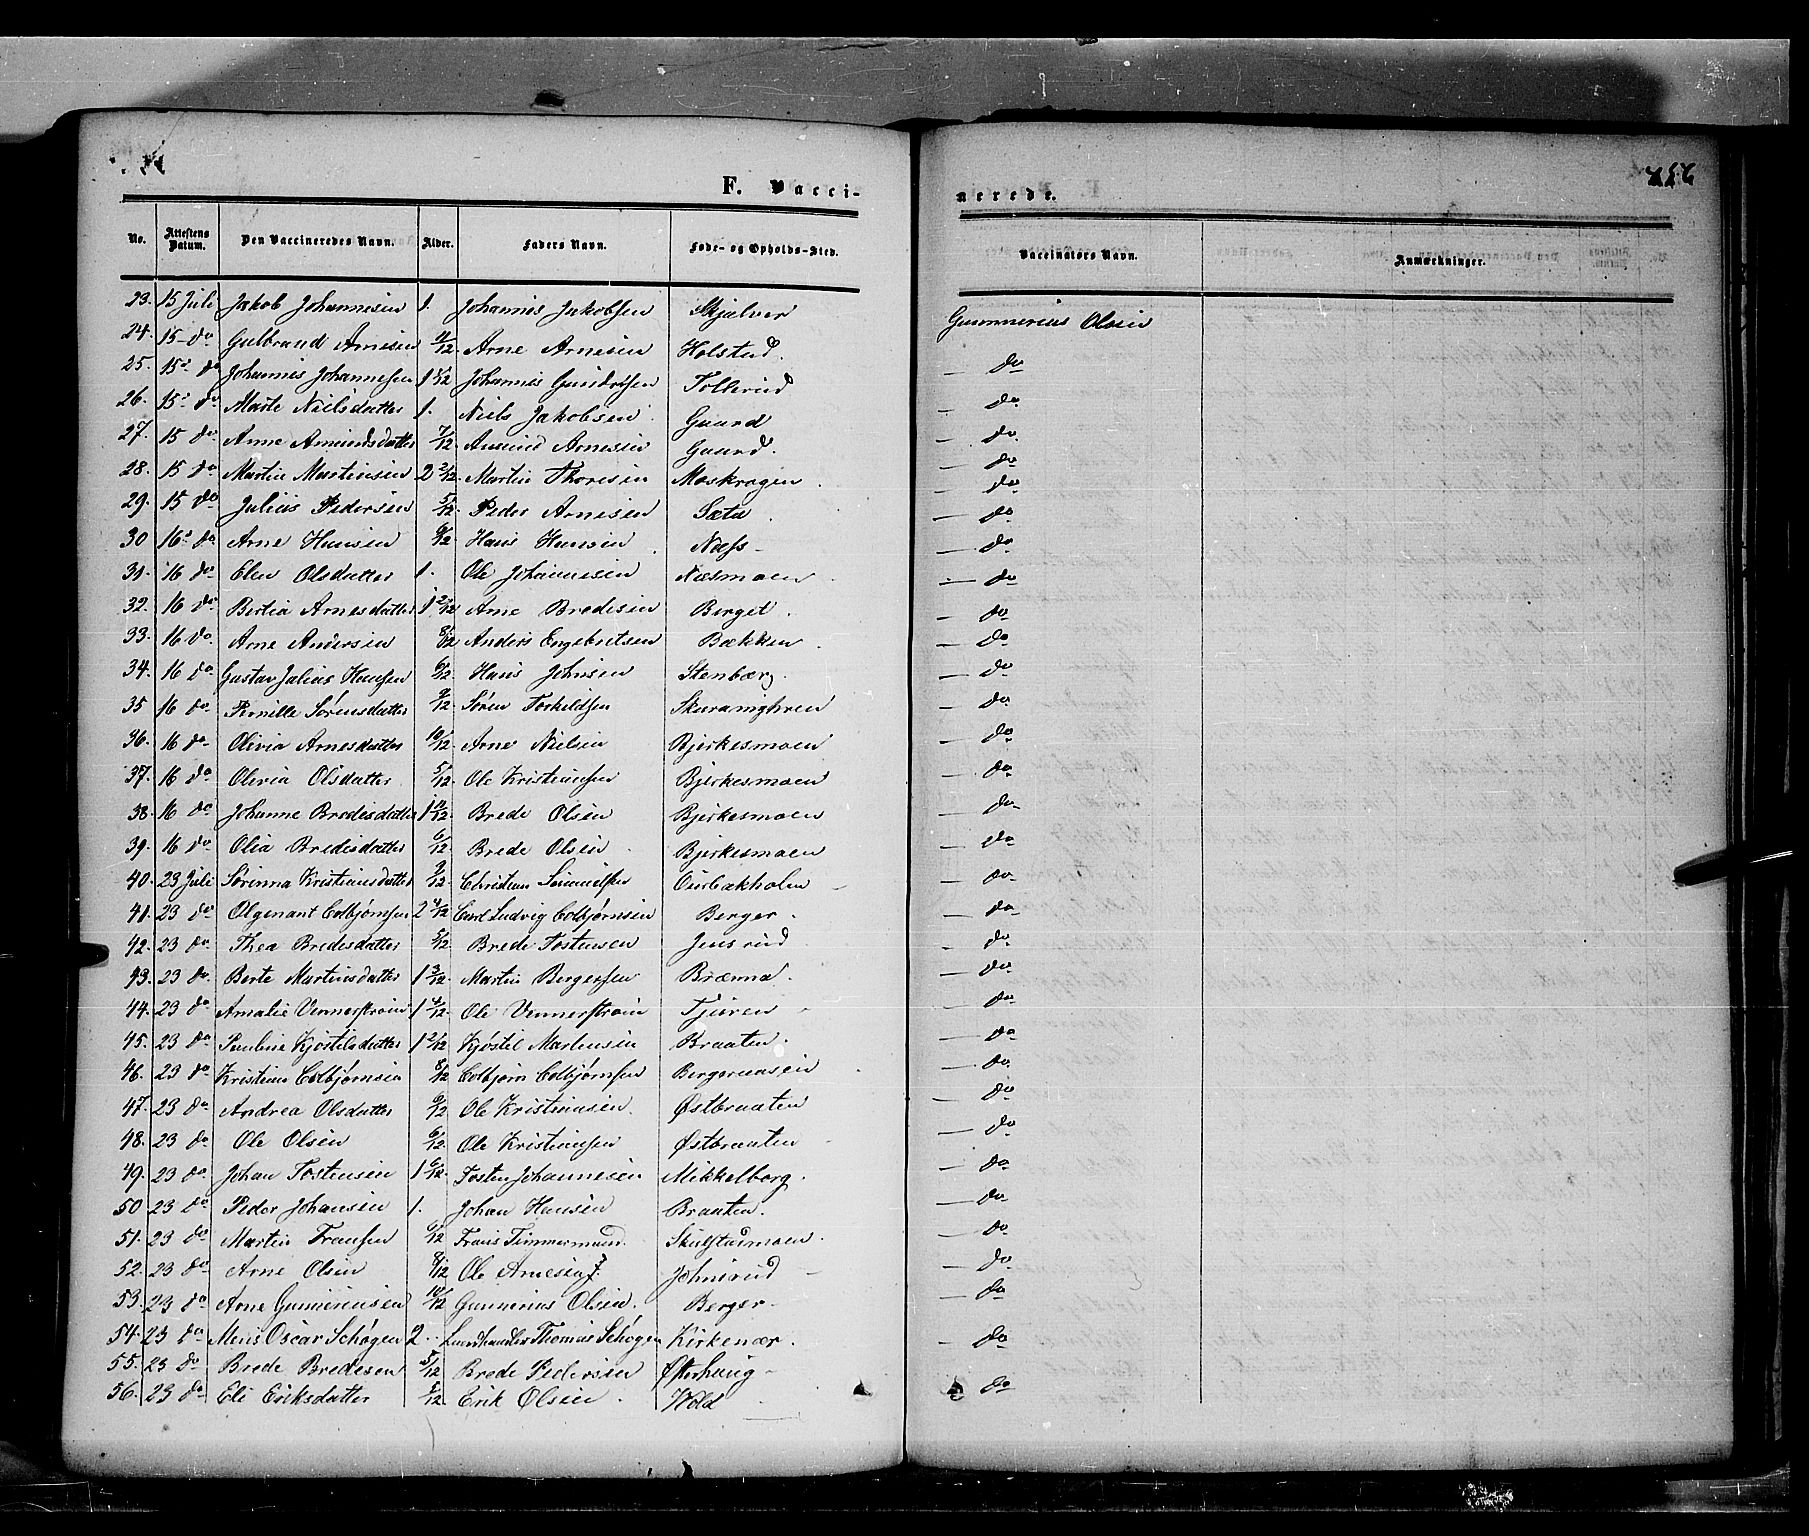 F. Vacci-
nerede.
No. Attestens Datum. Den Vaccineredes Navn. Alder. Faders Navn. Føde- og Opholds-Sted. Vaccinatørs Navn. Anmærkninger.
23. 15 Juli Jakob Johannesen 1. Johannes Jakobsen Skjulver Gunnerius Olsen
24. 15 do Gulbrand Arnesen /12 Arne Arnesen Holstad. — do
25. 15 do Johannes Johannesen 1 /12 Johannes Gundersen Tollerud — do
26. 15 do Marte Nielsdatter 1. Niels Jakobsen Gaard — do
27. 15 do Anne Amundsdatter 7/12 Amund Arnesen Gaard. — do
28. 15 do Martin Martinsen 2 2/12 Martin Thoresen Moskrogen — do
29. 15 do Julius Pedersen 5/12 Peder Arnesen Sæta — do
30 16 do Arne Hansen 6/12 Hans Hansen Næss — do
31. 16 do Elen Olsdatter 1. Ole Johannesen Næsmoen — do
32. 16 do Bertea Arnesdatter 1 2/12 Arne Bredesen Berget. — do
33. 16 do Arne Andersen 8/12 Anders Engebretsen Bækken — do
34. 16 do Gustav Julius Hansen 6/12 Hans Johnsen Stenbærg. — do
35 16 do Pernille Sørensdatter 9/12 Søren Torkildsen — do
36. 16 do Olivia Arnesdatter 10/12 Arne Nielsen Bjerkesmoen — do
37. 16 do Olivia Olsdatter 5/12 Ole Kristiansen Bjerkesmoen — do
38. 16 do Johanne Bredesdatter 1 10/12 Brede Olsen Bjerkesmoen — do
39. 16 do Olia Bredesdatter 6/12 Brede Olsen Bjerkesmoen — do
40. 23 Juli Sørinna Kristiansdatter 9/12 Christian — do
41. 23 do Olgenant Colbjørnsen 2 /12 Carl Ludvig Colbjørnsen Berger. — do
42. 23 do Thea Bredesdatter 5/12 Brede Tostensen Jensrud — do
43. 23 do Berte Martinsdatter 1 3/12 Martin Bergersen Brænna — do
44. 23 do Amalie Vennerstrøm 1 /12 Ole Vennerstrøm Tjuren — do
45. 23 do Pauline Kjøstilsdatter 1 2/12 Kjøstil Martensen Braaten. — do
46. 23 do Kristian Colbjørnsen 8/12 Colbjørn Colbjørnsen Bergeraasen — do
47. 23 do Andrea Olsdatter 6/12 Ole Kristiansen. Østbraaten — do
48. 23 do Ole Olsen 6/12 Ole Kristiansen Østbraaten — do
49. 23 do Johan Tostensen 1 6/12 Tosten Johannesen Mikkelborg. — do
50 23 do Peder Johansen 1. Johan Hansen Braaten. — do
51. 23 do Martin Fransen 6/12 Frans Timmermand. Skulstadmoen. — do
52. 23 do Arne Olsen 8/12 Ole Arnesen Johnsrud — do
53. 23 do Arne Gunneriusen 10/12 Gunnerius Olsen. Berger. — do
54. 23 do Mens Oscar Schøgen 2 Landhandler Thomas Schøgen Kirkenær. — do
55. 23 do Brede Bredesen 5/12 Brede Pedersen Østerhaug
56. 23 do Eli Eriksdatter 5/12 Erik Olsen. Wold — do